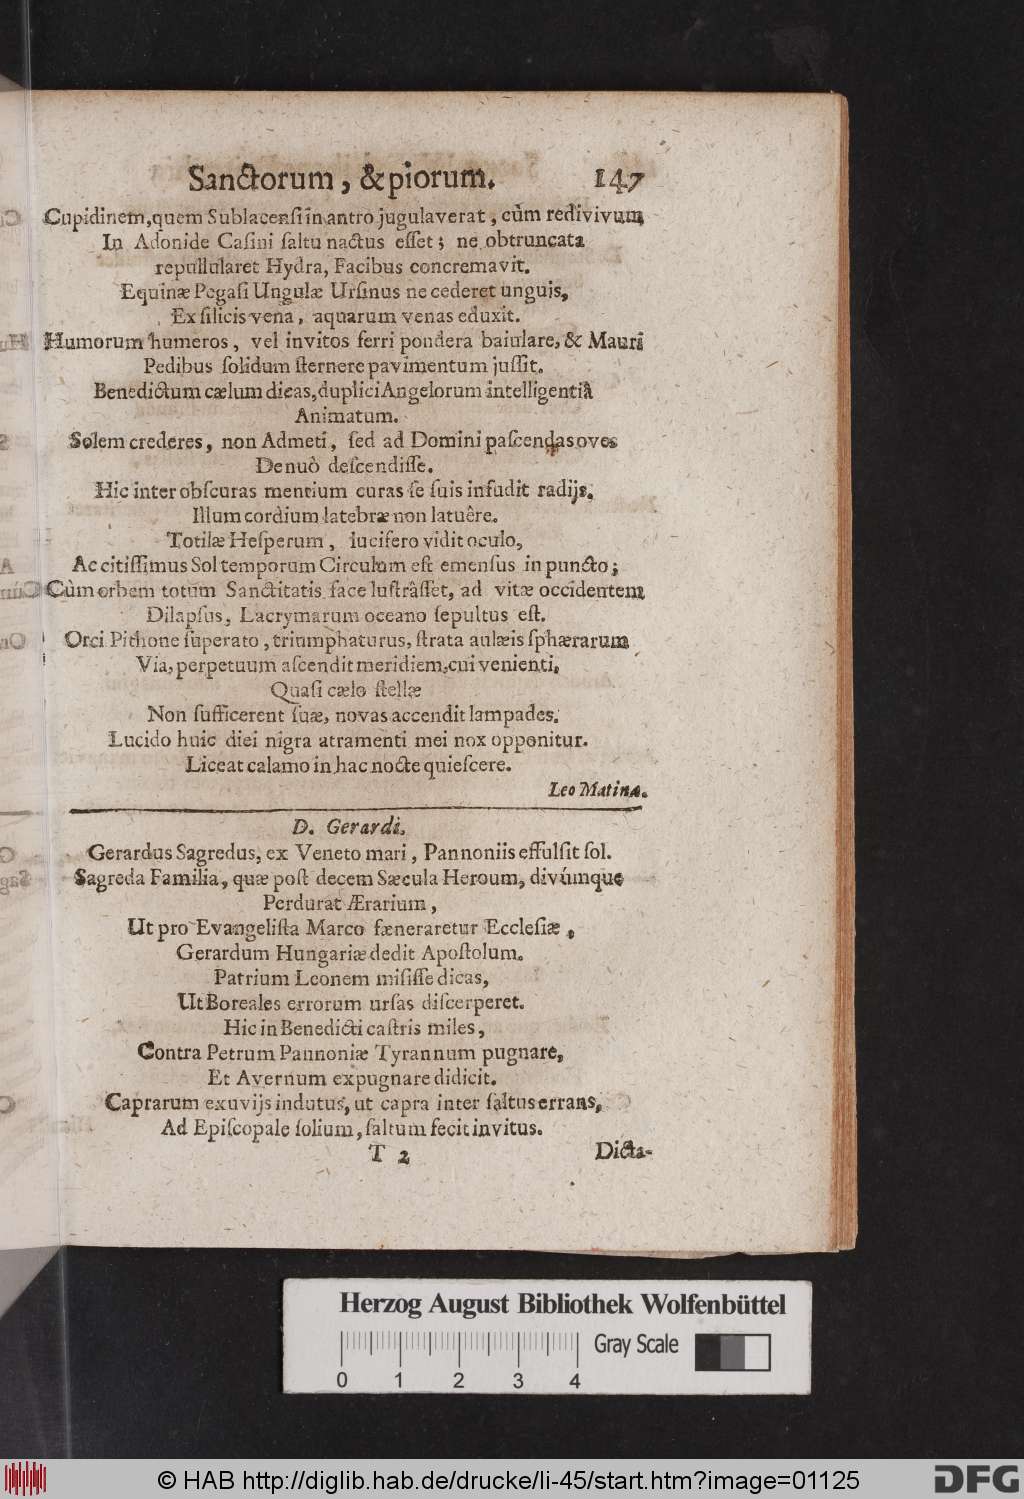 Sanctorum, & piorum. 147
Cupidinem, quem Sublacensi in antro jugulaverat, cùm redivivum,
In Adonide Casini saltu nactus esset; ne obtruncata
repullularet Hydra, Facibus concremavit.
Equinæ Pegasi Ungulæ Ursinus ne cederet unguis,
Ex silicis vena, aquarum venas eduxit.
Humorum humeros, vel invitos ferri pondera baiulare, & Mauri
Pedibus solidum sternere pavimentum jussit.
Benedictum cælum dicas, duplici Angelorum intelligentiâ
Animatum.
Solem crederes, non Admeti, sed ad Domini pascendas oves
Denuò descendisse.
Hic inter obscuras mentium curas se suis infudit radijs.
Illum cordium latebræ non latuêre.
Totilæ Hesperum, lucifero vidit oculo,
Ac citissimus Sol temporum Circulum est emensus in puncto;
Cùm orbem totum Sanctitatis face lustrâsset, ad vitæ occidentem
Dilapsus, Lacrymarum oceano sepultus est.
Orci Pithone superato, triumphaturus, strata aulæis sphærarum
Via, perpetuum ascendit meridiem, cui venienti,
Quasi cælo stellæ
Non sufficerent suæ, novas accendit lampades.
Lucido huic diei nigra atramenti mei nox opponitur.
Liceat calamo in hac nocte quiescere.
Leo Matina.
D. Gerardi.
Gerardus Sagredus, ex Veneto mari, Pannoniis effulsit sol.
Sagreda Familia, quæ post decem Sæcula Heroum, divúmque
Perdurat Ærarium,
Ut pro Evangelista Marco fæneraretur Ecclesiæ,
Gerardum Hungariæ dedit Apostolum.
Patrium Leonem misisse dicas,
Ut Boreales errorum ursas discerperet.
Hic in Benedicti castris miles,
Contra Petrum Pannoniæ Tyrannum pugnare,
Et Avernum expugnare didicit.
Caprarum exuvijs indutus, ut capra inter saltus errans,
Ad Episcopale solium, saltum fecit invitus.
T 2 Dicta-
Herzog August Bibliothek Wolfenbüttel
Gray Scale
0 1 2 3 4
© HAB http://diglib.hab.de/drucke/li-45/start.htm?image=01125
DFG